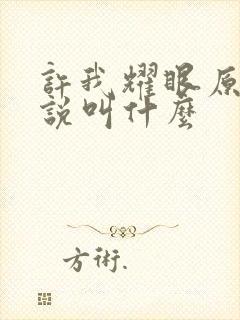 許我耀眼原
說叫什麼
方術.